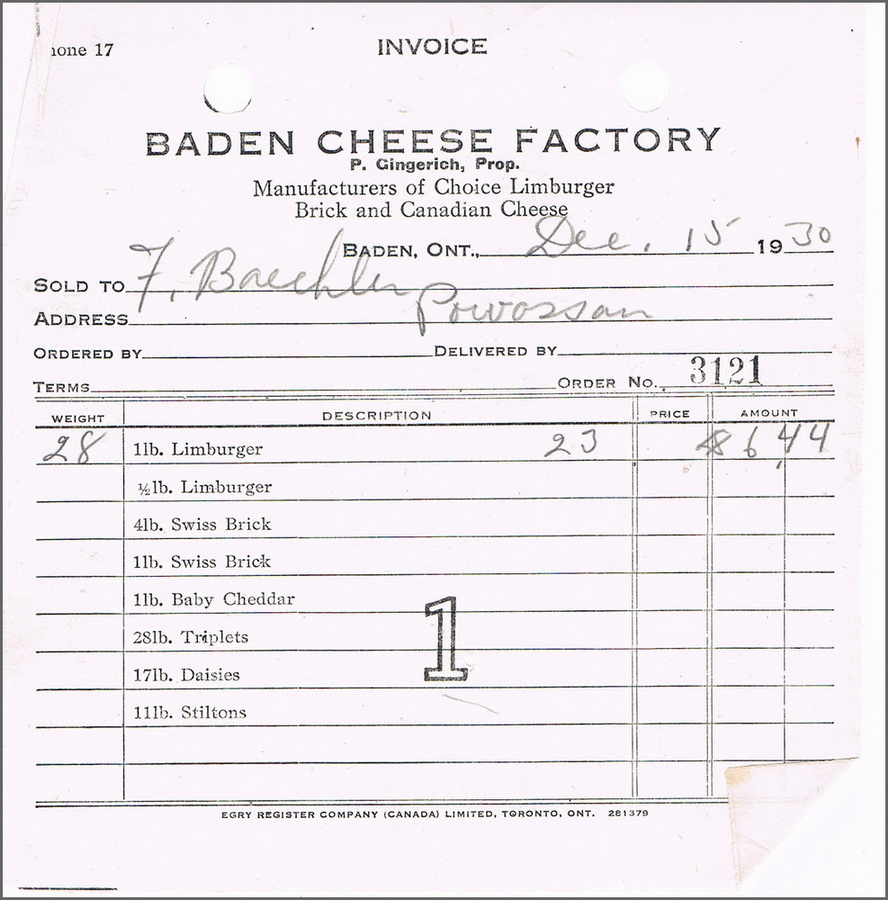 hone 17 INVOICE
BADEN CHEESE FACTORY
P. Gingerich, Prop.
Manufacturers of Choice Limburger
Brick and Canadian Cheese
BADEN, ONT., Dec. 15 1930
SOLD TO F. Baechler
ADDRESS Powassan
ORDERED BY DELIVERED BY
TERMS ORDER No. 3121
WEIGHT DESCRIPTION PRICE AMOUNT
28 1lb. Limburger 23 $6.44
½lb. Limburger
4lb. Swiss Brick
1lb. Swiss Brick
1lb. Baby Cheddar
28lb. Triplets
17lb. Daisies
11lb. Stiltons
1
EGRY REGISTER COMPANY (CANADA) LIMITED, TORONTO, ONT. 281379